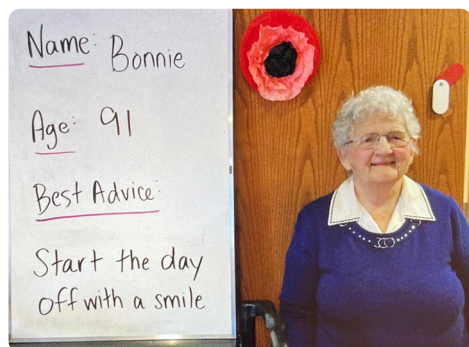 Name: Bonnie
Age: 91
Best Advice:
Start the day
off with a smile